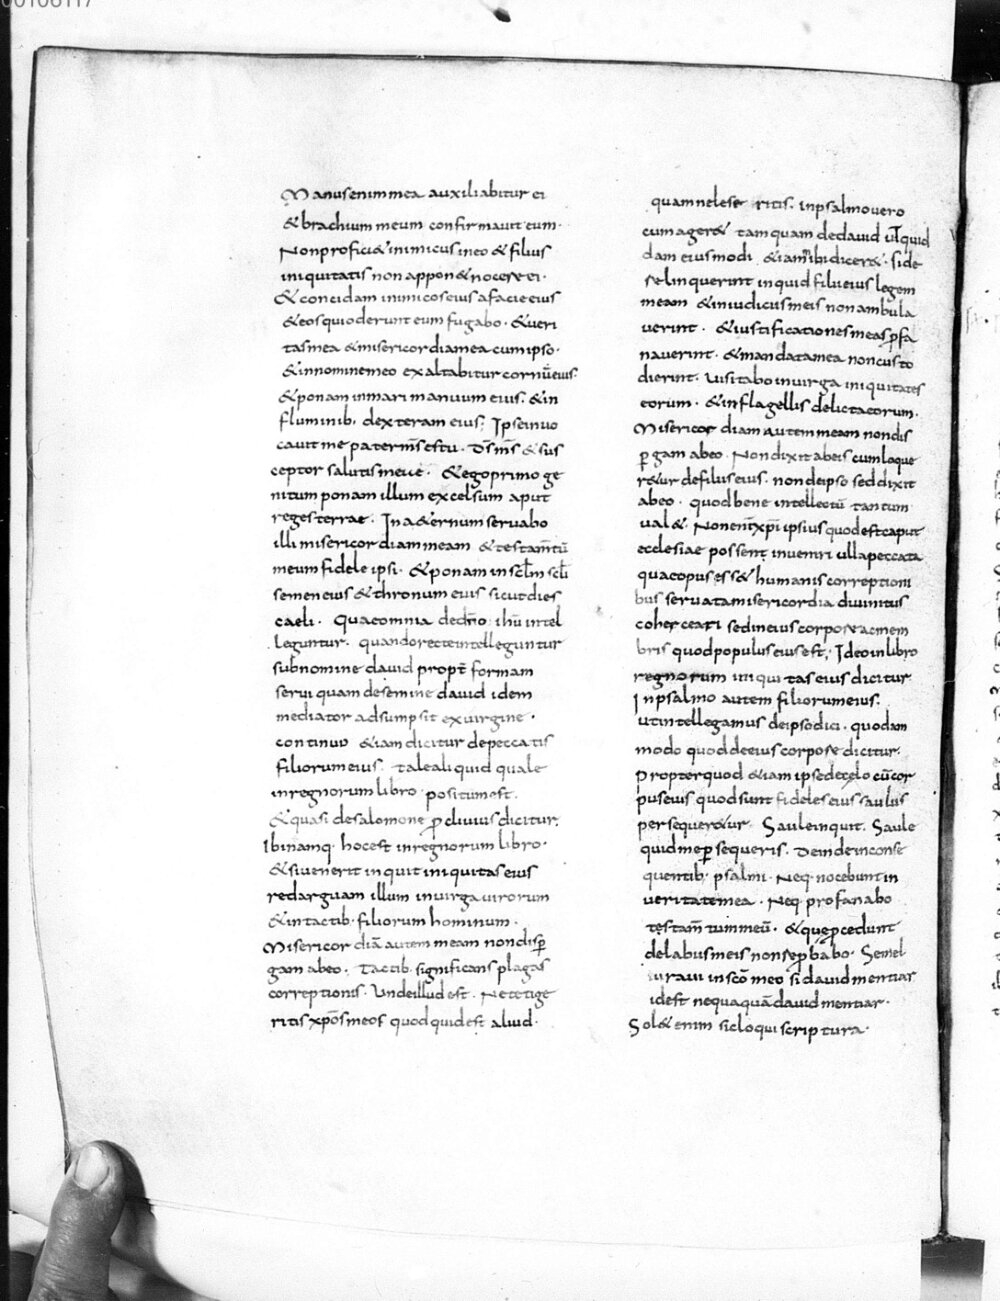 00106117
Manus enim mea auxiliabitur ei
& brachium meum confirmauit eum.
Non profici& inimicus in eo & filius
iniquitatis non appon& nocere ei.
& concidam inimicos eius a facie eius
& eos qui oderunt eum fugabo. & ueri
tas mea & misericordia mea cum ipso.
& in nomine meo exaltabitur cornū eius.
& ponam in mari manuum eius. & in
fluminib; dexteram eius; Ipse inuo
cauit me pater m̄s es tu. D̄s m̄s & sus
ceptor salutis meae. & ego primoge
nitum ponam illum excelsum aput
reges terrae. In a&ernum seruabo
illi misericordiam meam & testam̄tū
meum fidele ipsi. & ponam in sc̄lm sc̄li
semen eius & thronum eius sicut dies
caeli. Quae omnia de dn̄o ihū intel
leguntur. quando recte intelleguntur
sub nomine dauid propt̄ formam
serui quam de semine dauid idem
mediator adsumpsit ex uirgine.
continuo &iam dicitur de peccatis
filiorum eius. tale aliquid quale
in regnorum libro positum est.
& quasi de salomone ꝓcliuius dicitur.
Ibi namq; hoc est in regnorum libro.
& si uenerit inquit iniquitas eius
redarguam illum in uirga uirorum
& in tactib; filiorum hominum.
Misericordiā autem meam non disꝑ
gam ab eo. Tactib; significans plagas
correptionis. Unde illud est. Ne tetige
ritis xp̄os meos quod quid est aliud.
quam ne leseritis. in psalmo uero
cum ager& tamquam de dauid ut quid
dam eiusmodi &iam ibi dicer&. si de
relinquerint inquid filii eius legem
meam & in iudiciis meis non ambula
uerint. & iustificationes meas ꝓfa
nauerint. & mandata mea non custo
dierint. uisitabo in uirga iniquitates
eorum. & in flagellis delicta eorum.
Misericordiam autem meam non dis
ꝑgam ab eo. Non dixit ab eis cum loque
r&ur de filiis eius. non de ipso sed dixit
ab eo. quod bene intellectū tantum
ual&. Non enim xp̄i ipsius quod est caput
ecclesiae possent inueniri ulla peccata
quae opus ess& humanis correptioni
bus seruata misericordia diuinitus
coherceari sed in eius corpore ac mem
bris quod populus eius est; Ideo in libro
regnorum iniquitas eius dicitur
In psalmo autem filiorum eius.
ut intellegamus de ipso dici. quodam
modo quod de eius corpore dicitur.
Propter quod &iam ipse de celo cū cor
pus eius quod sunt fideles eius saulus
persequer&ur. Saule inquit. Saule
quid me ꝑsequeris. Deinde in conse
quentib; psalmi. Neq; nocebunt in
ueritate mea. Neq; profanabo
testam̄tum meū. & que ꝓcedunt
de labiis meis non reꝓbabo. Semel
iuraui in scō meo si dauid mentiar
id est nequaquā dauid mentiar.
Sol& enim sic loqui scriptura.